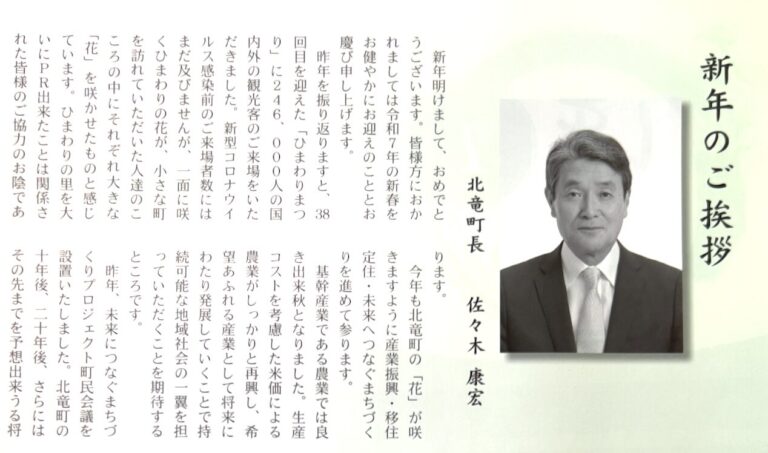 新年のご挨拶
北竜町長　佐々木 康宏
　新年明けまして、おめでと
うございます。皆様方におか
れましては令和７年の新春を
お健やかにお迎えのこととお
慶び申し上げます。
　昨年を振り返りますと、38
回目を迎えた「ひまわりまつ
り」に２４６、０００人の国
内外の観光客のご来場をいた
だきました。新型コロナウイ
ルス感染前のご来場者数には
まだ及びませんが、一面に咲
くひまわりの花が、小さな町
を訪れていただいた人達のこ
ころの中にそれぞれ大きな
「花」を咲かせたものと感じ
ています。ひまわりの里を大
いにＰＲ出来たことは関係さ
れた皆様のご協力のお陰であ
ります。
　今年も北竜町の「花」が咲
きますように産業振興・移住
定住・未来へつなぐまちづく
りを進めて参ります。
　基幹産業である農業では良
き出来秋となりました。生産
コストを考慮した米価による
農業がしっかりと再興し、希
望あふれる産業として将来に
わたり発展していくことで持
続可能な地域社会の一翼を担
っていただくことを期待する
ところです。
　昨年、未来につなぐまちづ
くりプロジェクト町民会議を
設置いたしました。北竜町の
十年後、二十年後、さらには
その先までを予想出来うる将